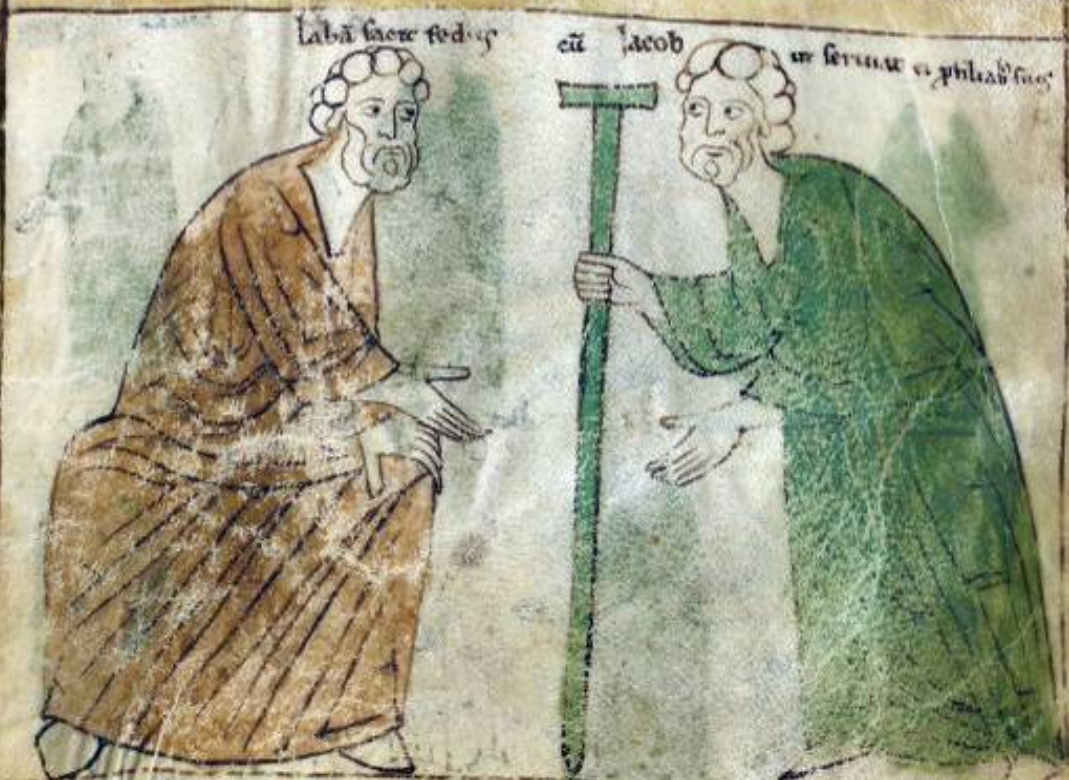 labā facit fedus cū Jacob ut seruiat ei ꝓ filiab' suis